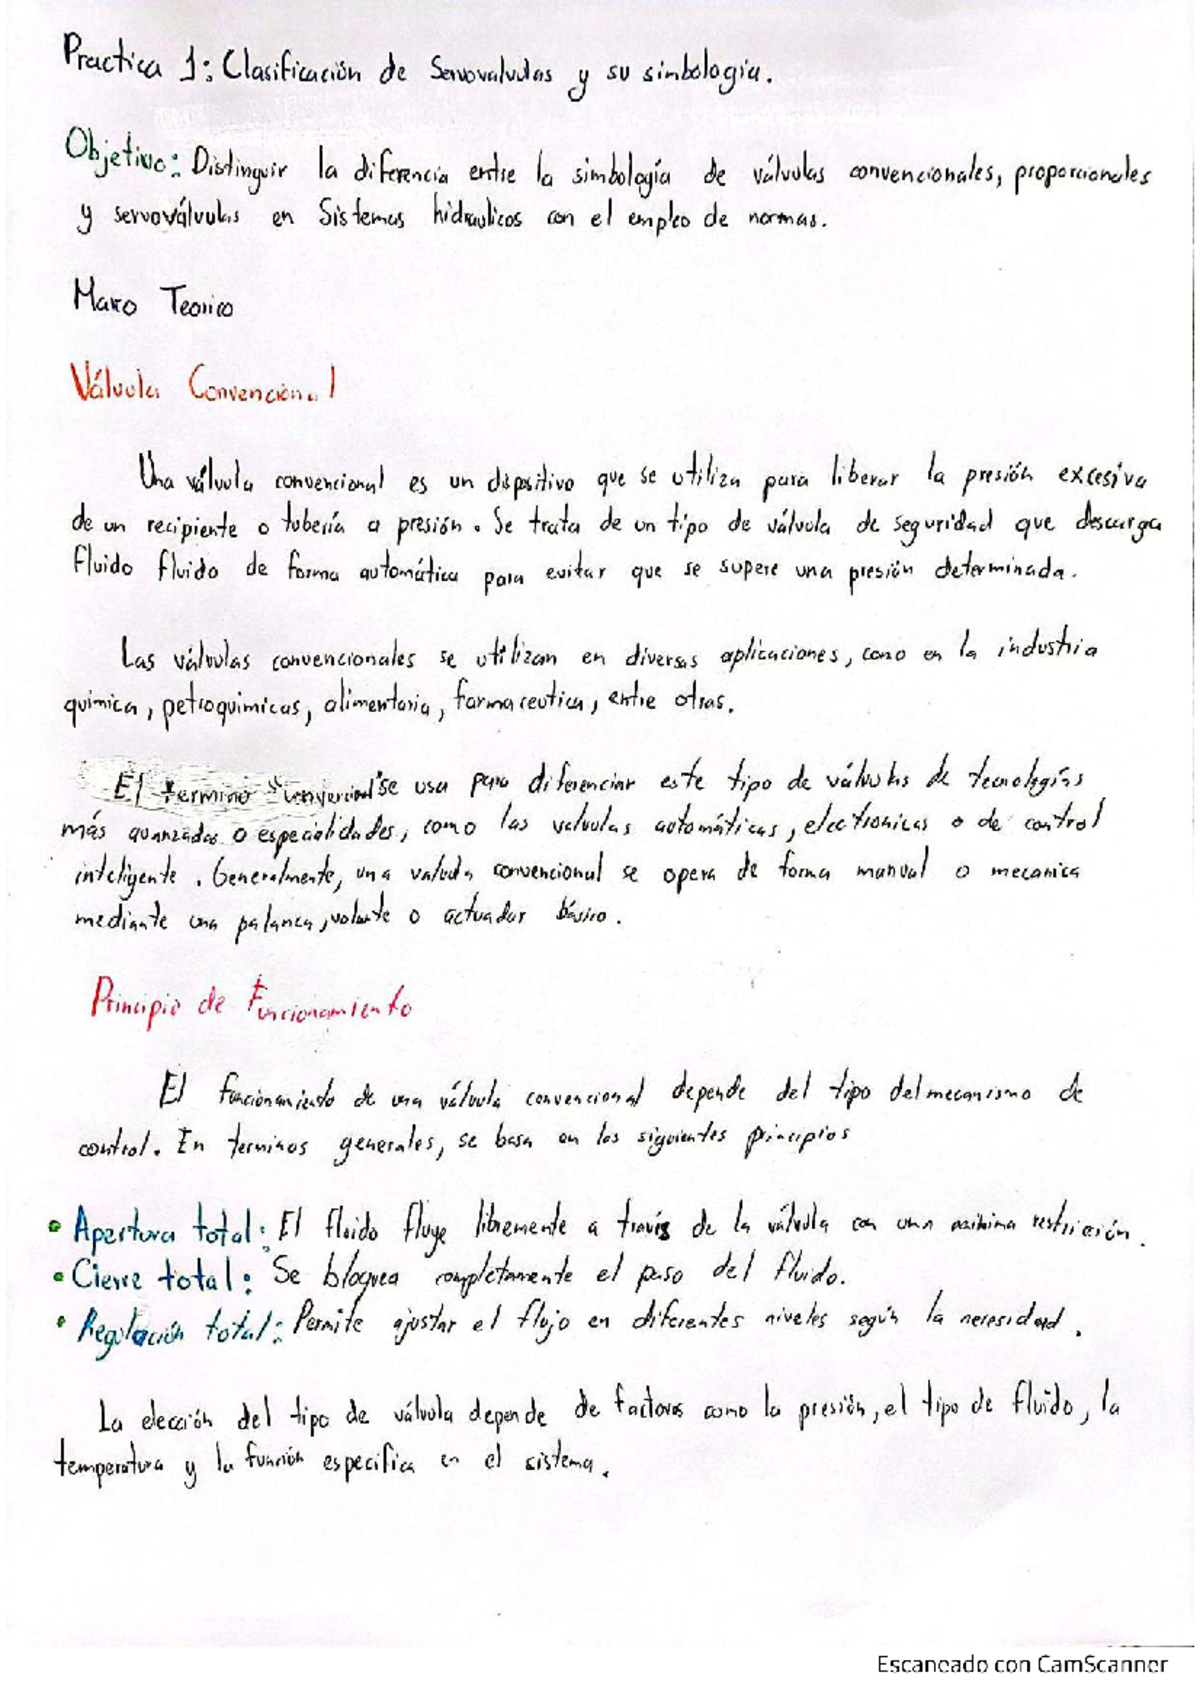 Practica 1: Clasificación de Servovalvulas y su simbología.
Objetivo: Distinguir la diferencia entre la simbología de válvulas convencionales, proporcionales
y servoválvulas en Sistemas hidraulicos con el empleo de normas.
Marco Teorico
Válvula Convencional
Una válvula convencional es un dispositivo que se utiliza para liberar la presión excesiva
de un recipiente o tubería a presión. Se trata de un tipo de válvula de seguridad que descarga
fluido fluido de forma automática para evitar que se supere una presión determinada.
Las válvulas convencionales se utilizan en diversas aplicaciones, como en la industria
quimica, petroquimicas, alimentaria, farmaceutica, entre otras.
El termino "convencional" se usa para diferenciar este tipo de válvulas de tecnologías
más avanzadas o especialidades, como las valvulas automáticas, electronicas o de control
inteligente. Generalmente, una valvula convencional se opera de forma manual o mecanica
mediante una palanca, volante o actuador básico.
Principio de Funcionamiento
El funcionamiento de una válvula convencional depende del tipo del mecanismo de
control. En terminos generales, se basa en los siguientes principios
• Apertura total: El fluido fluye libremente a través de la válvula con una restricción.
• Cierre total: Se bloquea completamente el paso del fluido.
• Regulación total: Permite ajustar el flujo en diferentes niveles según la necesidad.
La elección del tipo de válvula depende de factores como la presión, el tipo de fluido, la
temperatura y la función especifica en el sistema.
Escaneado con CamScanner